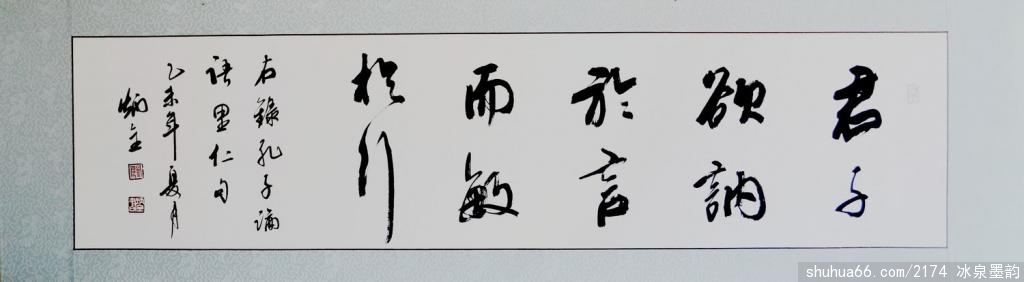 君子
欲訥
於言
而敏
於行
右錄孔子論
語里仁句
乙未年夏月
炳金
shuhua66.com/2174 冰泉墨韵